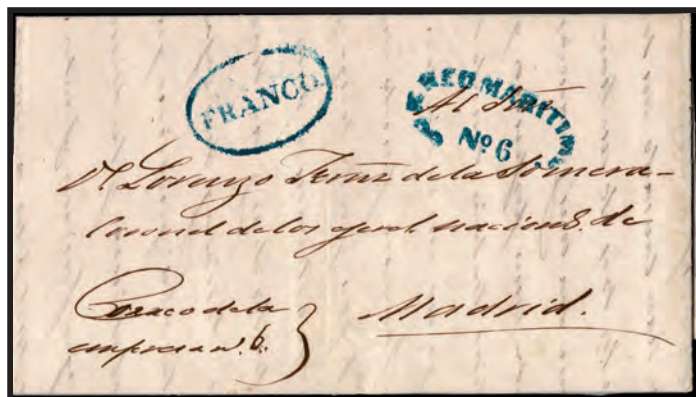 FRANCO.
CORREO MARITIMO
Nº 6
Al Sor
Dn Lorenzo Fernz de la Somera
Coronel de los ejercit. nacions. de
Madrid.
Correo de la
empresa n. 6.